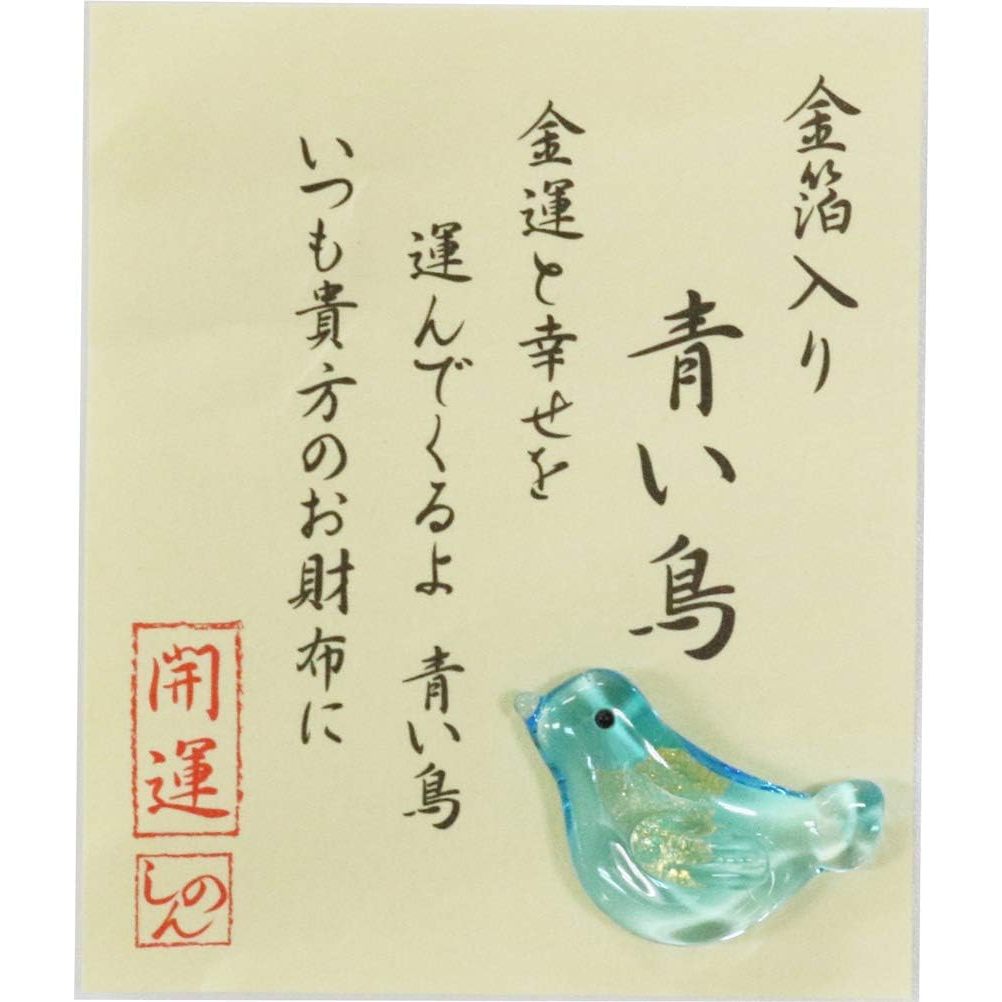 金箔入り
青い鳥
金運と幸せを
運んでくるよ 青い鳥
いつも貴方のお財布に
開運
のしん